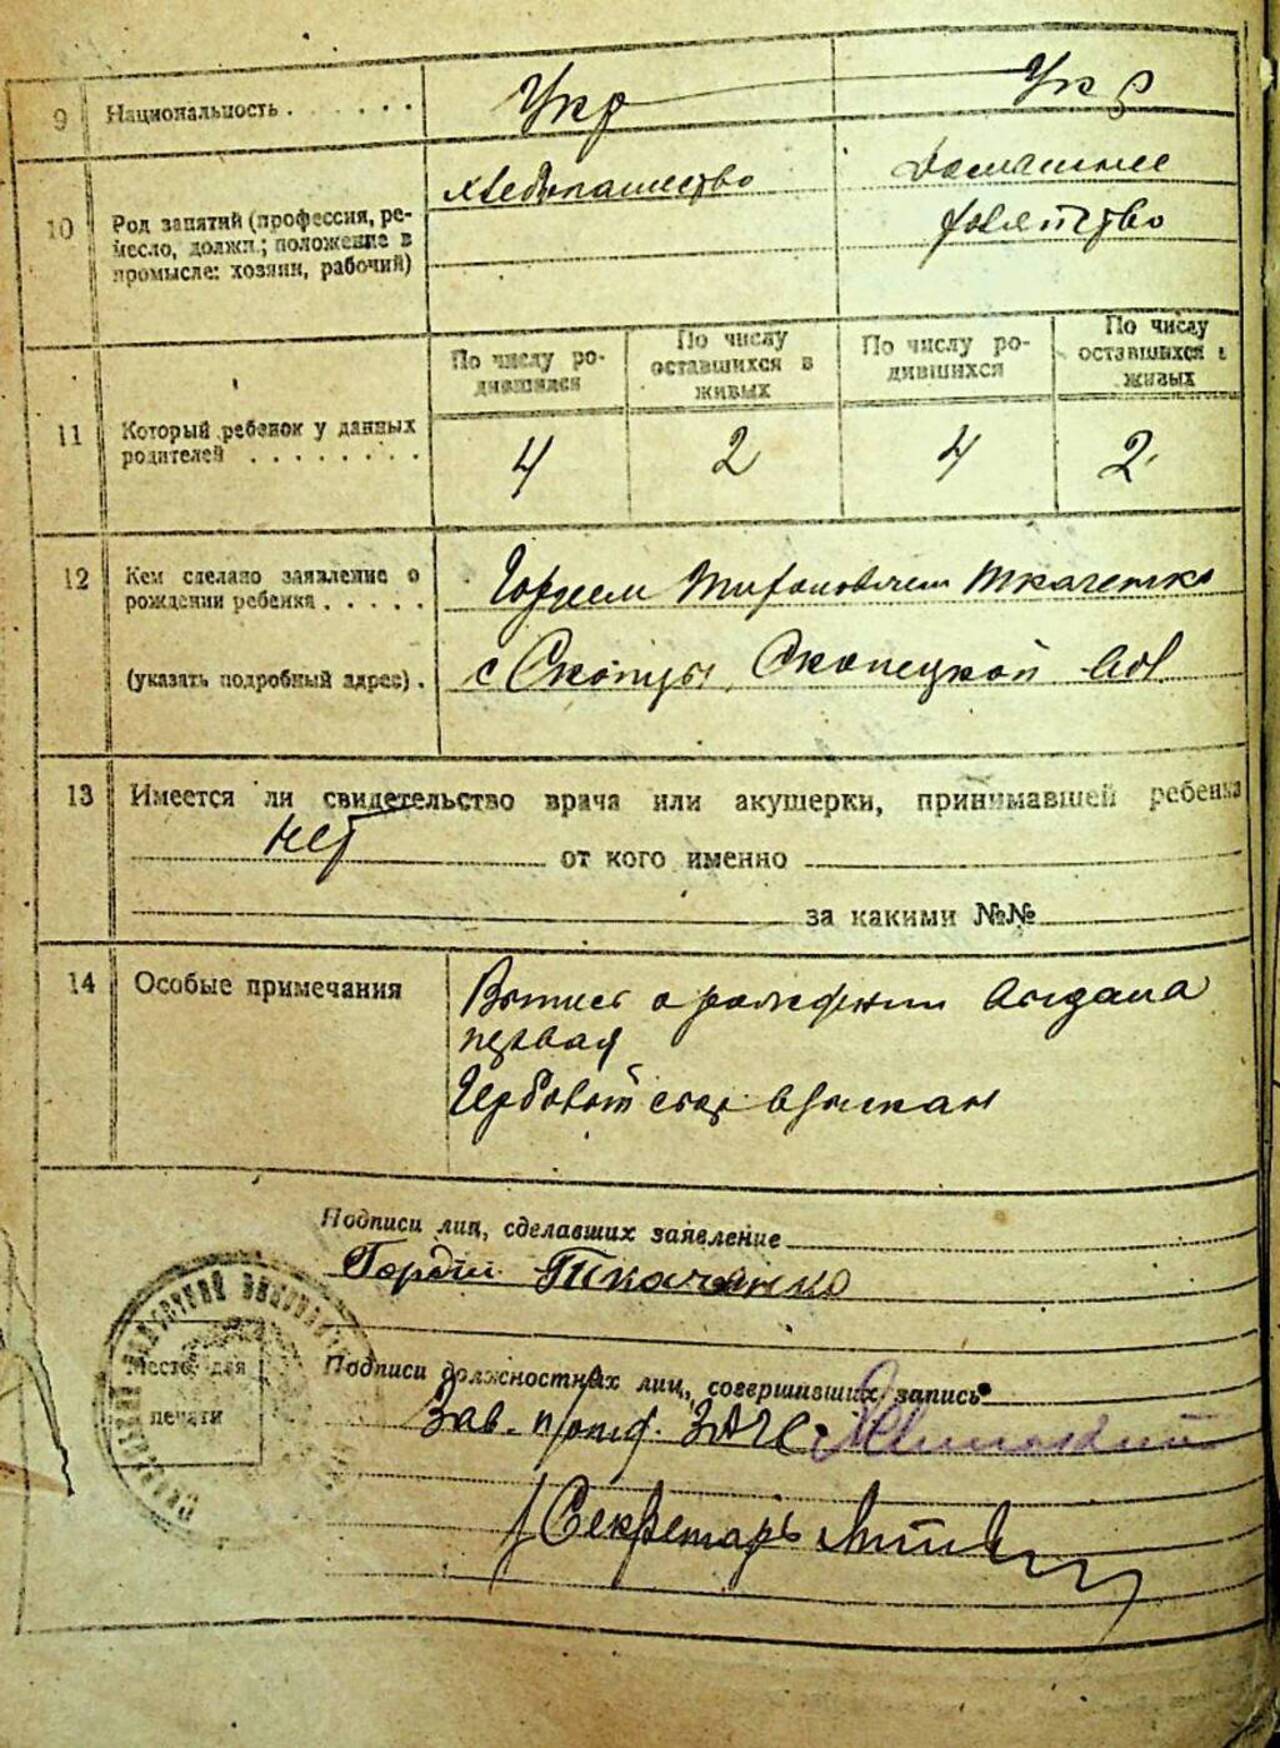 9 Национальность . . . . . . Укр Укр
10 Род занятий (профессия, ре-
месло, должн.; положение в
промысле: хозяин, рабочий)
хлебопашество
Домашнее
хозяйство
По числу ро-
дившихся
По числу
оставшихся в
живых
По числу ро-
дившихся
По числу
оставшихся в
живых
11 Который ребенок у данных
родителей . . . . . . . .
4 2 4 2
12 Кем сделано заявление о
рождении ребенка . . . . .
(указать подробный адрес) .
Гордеем Ткаченко
с Скопцы, Скопецкой
13 Имеется ли свидетельство врача или акушерки, принимавшей ребенка
нет от кого именно
за какими №№
14 Особые примечания
Выпись о рождении выдана
первая
Гербовый сбор взыскан
Подписи лиц, сделавших заявление
Гордій Ткаченко
Место для
печати
Подписи должностных лиц, совершивших запись
Зав. ЗАГС
Секретарь